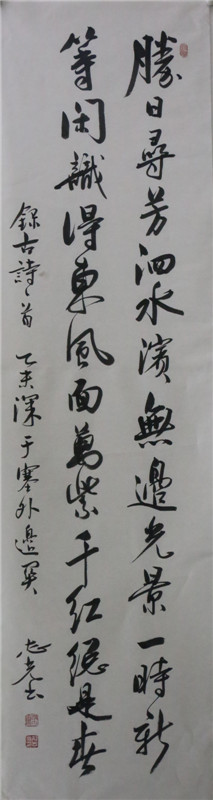 勝日尋芳泗水濱無邊光景一時新
等閑識得東風面萬紫千紅總是春
錄古詩一首 乙未深于塞外邊